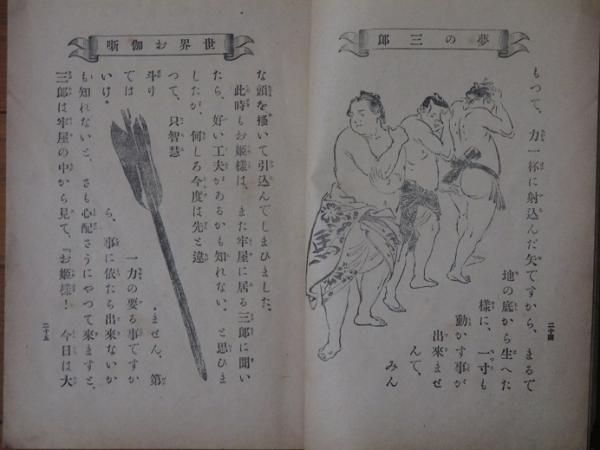 郎三の夢
もつて、力一杯に射込んだ矢ですから、まるで
地の底から生へた
様に、一寸も
動かす事が
出來ませ
んで、
みん
二十四
噺伽お界世
な頭を搔いて引込んでしまひました。
此時もお姫様は、また牢屋に居る三郎に聞い
たら、好い工夫があるかも知れない。と思ひま
したが、何しろ今度は先と違
つて、只智慧
斗り
では
いけ
ません、第
一力の要る事ですか
ら、事に依たら出來ないか
も知れないと、さも心配さうにやつて來ますと、
三郎は牢屋の中から見て、『お姫樣！　今日は大
二十五